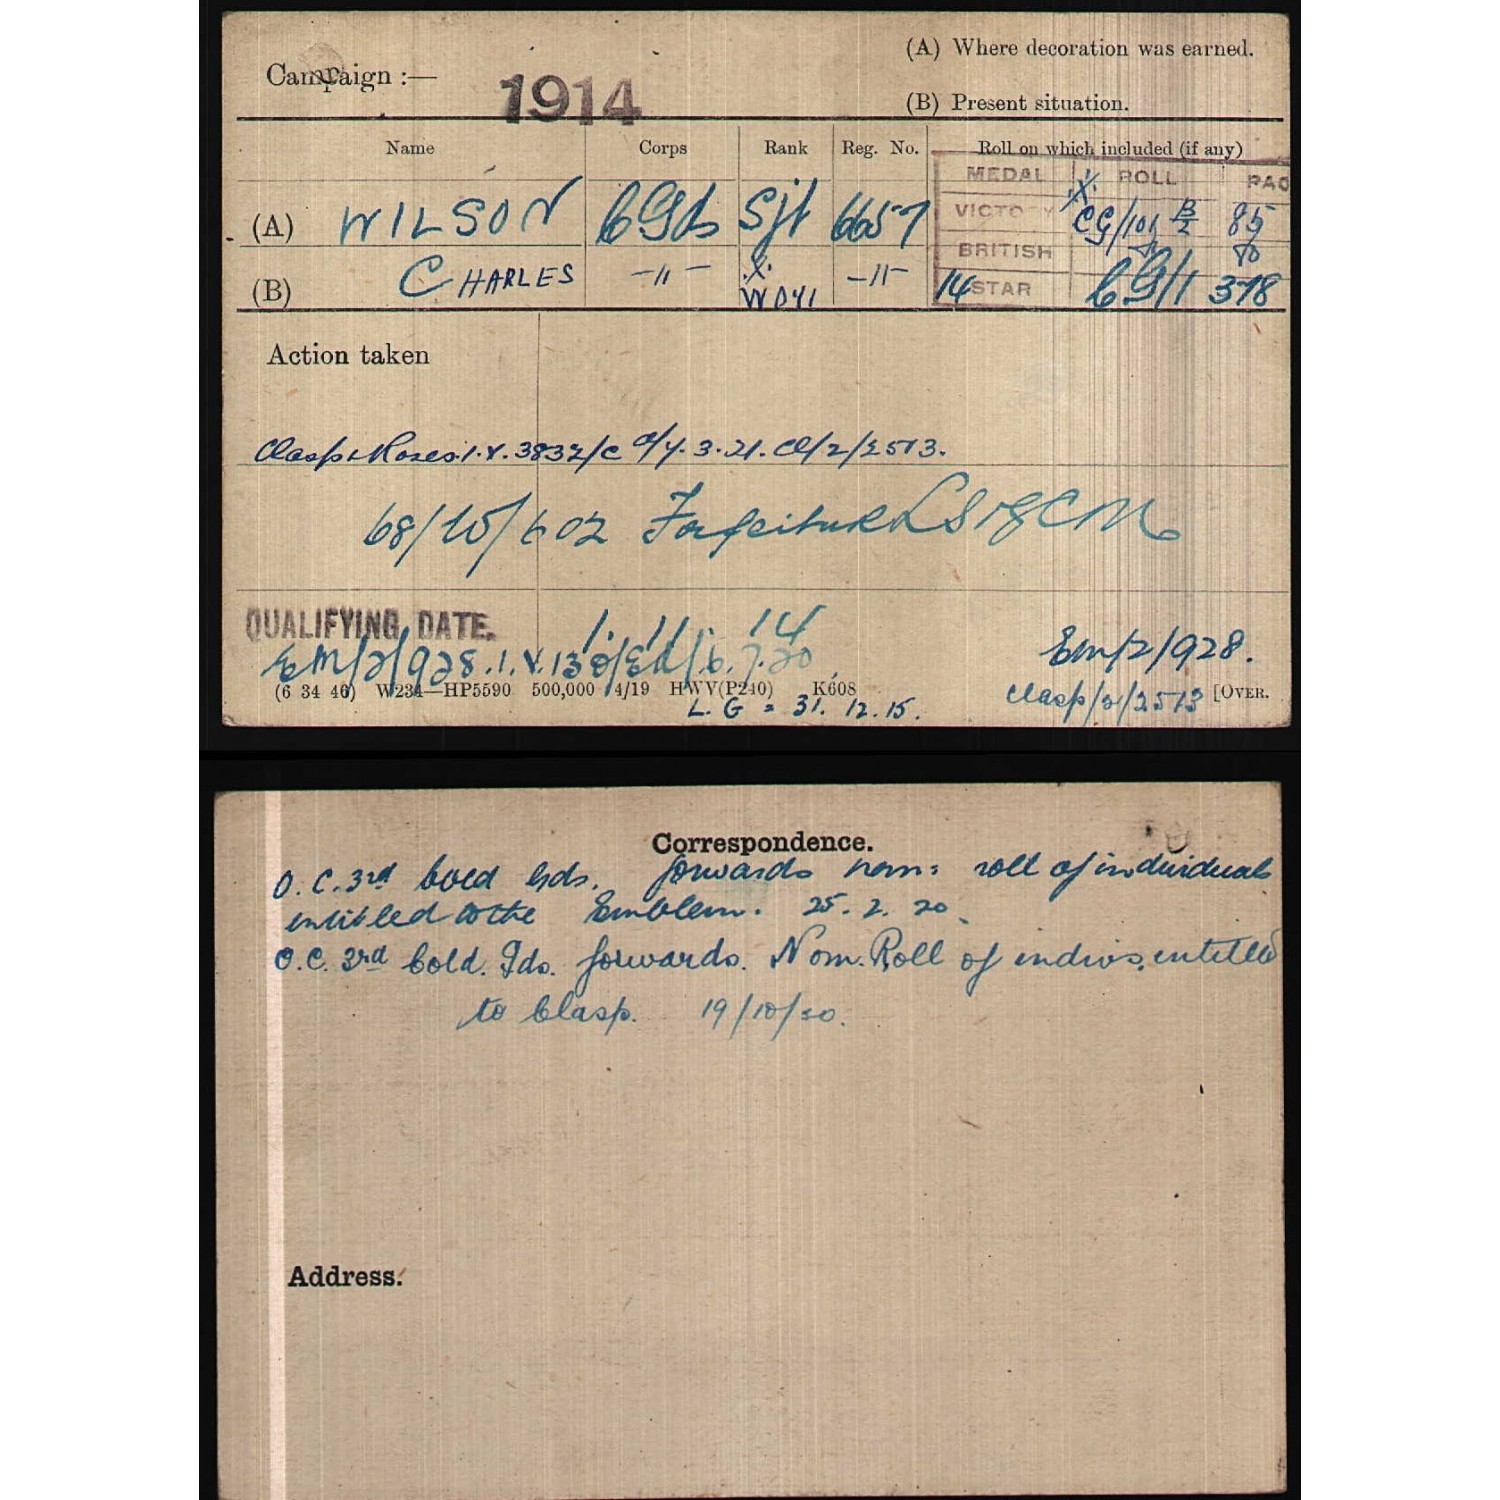 Campaign :— 1914
(A) Where decoration was earned.
(B) Present situation.
Name Corps Rank Reg. No. Roll on which included (if any)
MEDAL ROLL PAG
(A) WILSON C Gds Sjt 6657 VICTORY X CG/101 B/2 85
BRITISH
(B) CHARLES —"— X WO41 —"— 14 STAR CG/1 378
Action taken
Clasp & Roses. I.V. 3832/C 4.3.21. Cl/2/2513.
68/15/602 Forfeiture LS & GCM
QUALIFYING DATE. 1. 11. 14
EM/2/928. I.V. 138/ 6.7.20 Em/2/928.
(6 34 46) W234—HP5590 500,000 4/19 HWV(P240) K608
L. G = 31. 12. 15. Clasp/2/2513 [OVER.
Correspondence.
O.C. 3rd Cold Gds. forwards nom: roll of individuals
entitled to the Emblem. 25. 2. 20.
O.C. 3rd Cold. Gds. forwards. Nom. Roll of indivs. entitled
to Clasp. 19/10/20.
Address.